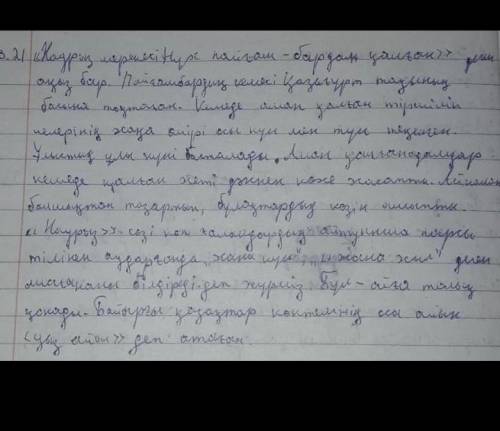 3.2) «Наурыз мерекесі Нұх пайғам-бардан қалған» деген
аңыз бар. Пайғамбардың кемесі Қазығұрт тауының
басына тоқтаған. Кемеде аман қалған тіршілік
иелерінің жаңа өмірі осы күн мен түн теңелген
Ұлыстың ұлы күні басталады. Аман қалған адамдар
кемеде қалған жеті дәннен көже жасапты. Айналасын
балшықтан тазартып, бұлақтардың көзін ашыпты.
«Наурыз» сөзі көп ғалымдардың айтуынша парсы
тілінен аударғанда жаңа күн", "жаңа жыл" деген
мағынаны білдіреді деп жүрміз Бұл -
қонады. Байырғы қазақтар көктемнің осы айын
«Ұыз айы» деп атаған